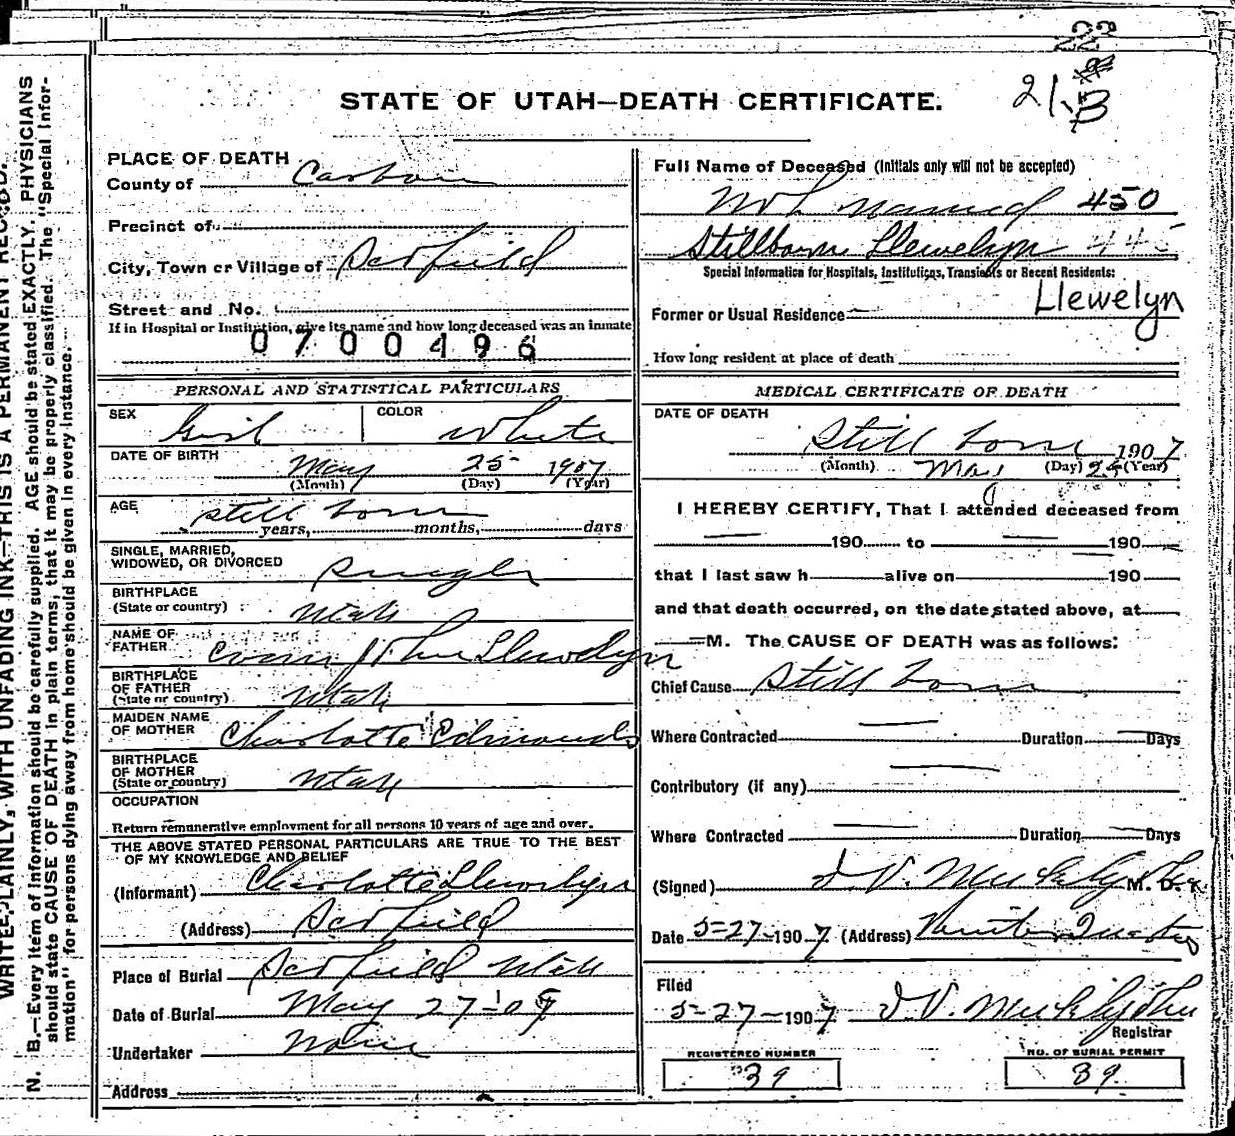 22
21. B
STATE OF UTAH—DEATH CERTIFICATE.
PLACE OF DEATH
County of Carbon
Precinct of
City, Town or Village of Scofield
Street and No.
If in Hospital or Institution, give its name and how long deceased was an inmate
0700496
PERSONAL AND STATISTICAL PARTICULARS
SEX Girl COLOR White
DATE OF BIRTH May 25 1907
(Month) (Day) (Year)
AGE still born
years, months, days
SINGLE, MARRIED,
WIDOWED, OR DIVORCED Single
BIRTHPLACE
(State or country) Utah
NAME OF
FATHER Evan John Llewelyn
BIRTHPLACE
OF FATHER
(State or country) Utah
MAIDEN NAME
OF MOTHER Charlotte Edmunds
BIRTHPLACE
OF MOTHER
(State or country) Utah
OCCUPATION
Return remunerative employment for all persons 10 years of age and over.
THE ABOVE STATED PERSONAL PARTICULARS ARE TRUE TO THE BEST
OF MY KNOWLEDGE AND BELIEF
(Informant) Charlotte Llewelyn
(Address) Scofield
Place of Burial Scofield Utah
Date of Burial May 27-07
Undertaker None
Address
Full Name of Deceased (Initials only will not be accepted)
Not named 450
Stillborn Llewelyn 445
Special Information for Hospitals, Institutions, Transients or Recent Residents:
Llewelyn
Former or Usual Residence
How long resident at place of death
MEDICAL CERTIFICATE OF DEATH
DATE OF DEATH
Still born 1907
(Month) May (Day) 25 (Year)
I HEREBY CERTIFY, That I attended deceased from
190 to 190
that I last saw h alive on 190
and that death occurred, on the date stated above, at
M. The CAUSE OF DEATH was as follows:
Chief Cause Still born
Where Contracted Duration Days
Contributory (if any)
Where Contracted Duration Days
(Signed) M. D.
Date 5-27-1907 (Address) Winter Quarters
Filed
5-27-1907
Registrar
REGISTERED NUMBER
39
NO. OF BURIAL PERMIT
39
WRITE PLAINLY, WITH UNFADING INK—THIS IS A PERMANENT RECORD.
N. B.—Every item of information should be carefully supplied. AGE should be stated EXACTLY. PHYSICIANS
should state CAUSE OF DEATH in plain terms, that it may be properly classified. The "Special Infor-
mation" for persons dying away from home should be given in every instance.